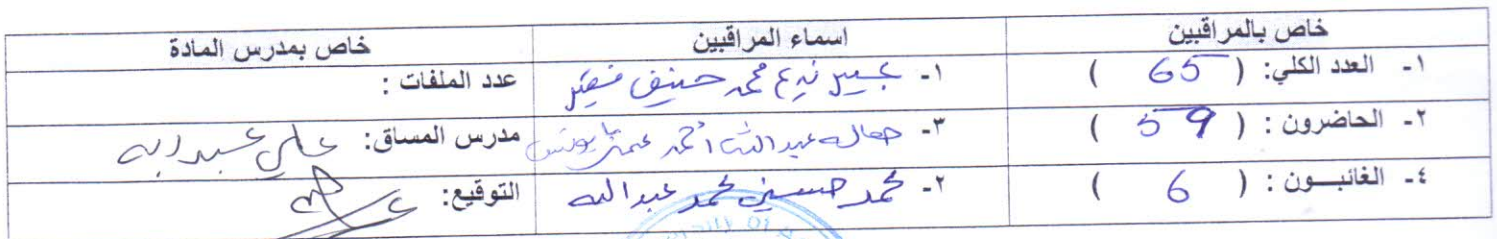 خاص بالمراقبين
اسماء المراقبين
خاص بمدرس المادة
١- العدد الكلي: ( 65 )
١- عبير محمد حنيف
عدد الملفات :
٢- الحاضرون : ( 59 )
٣- عبد الله أحمد
مدرس المساق: علي عبد ربه
٤- الغائبـــون : ( 6 )
٢- محمد حسين محمد عبد الله
التوقيع: